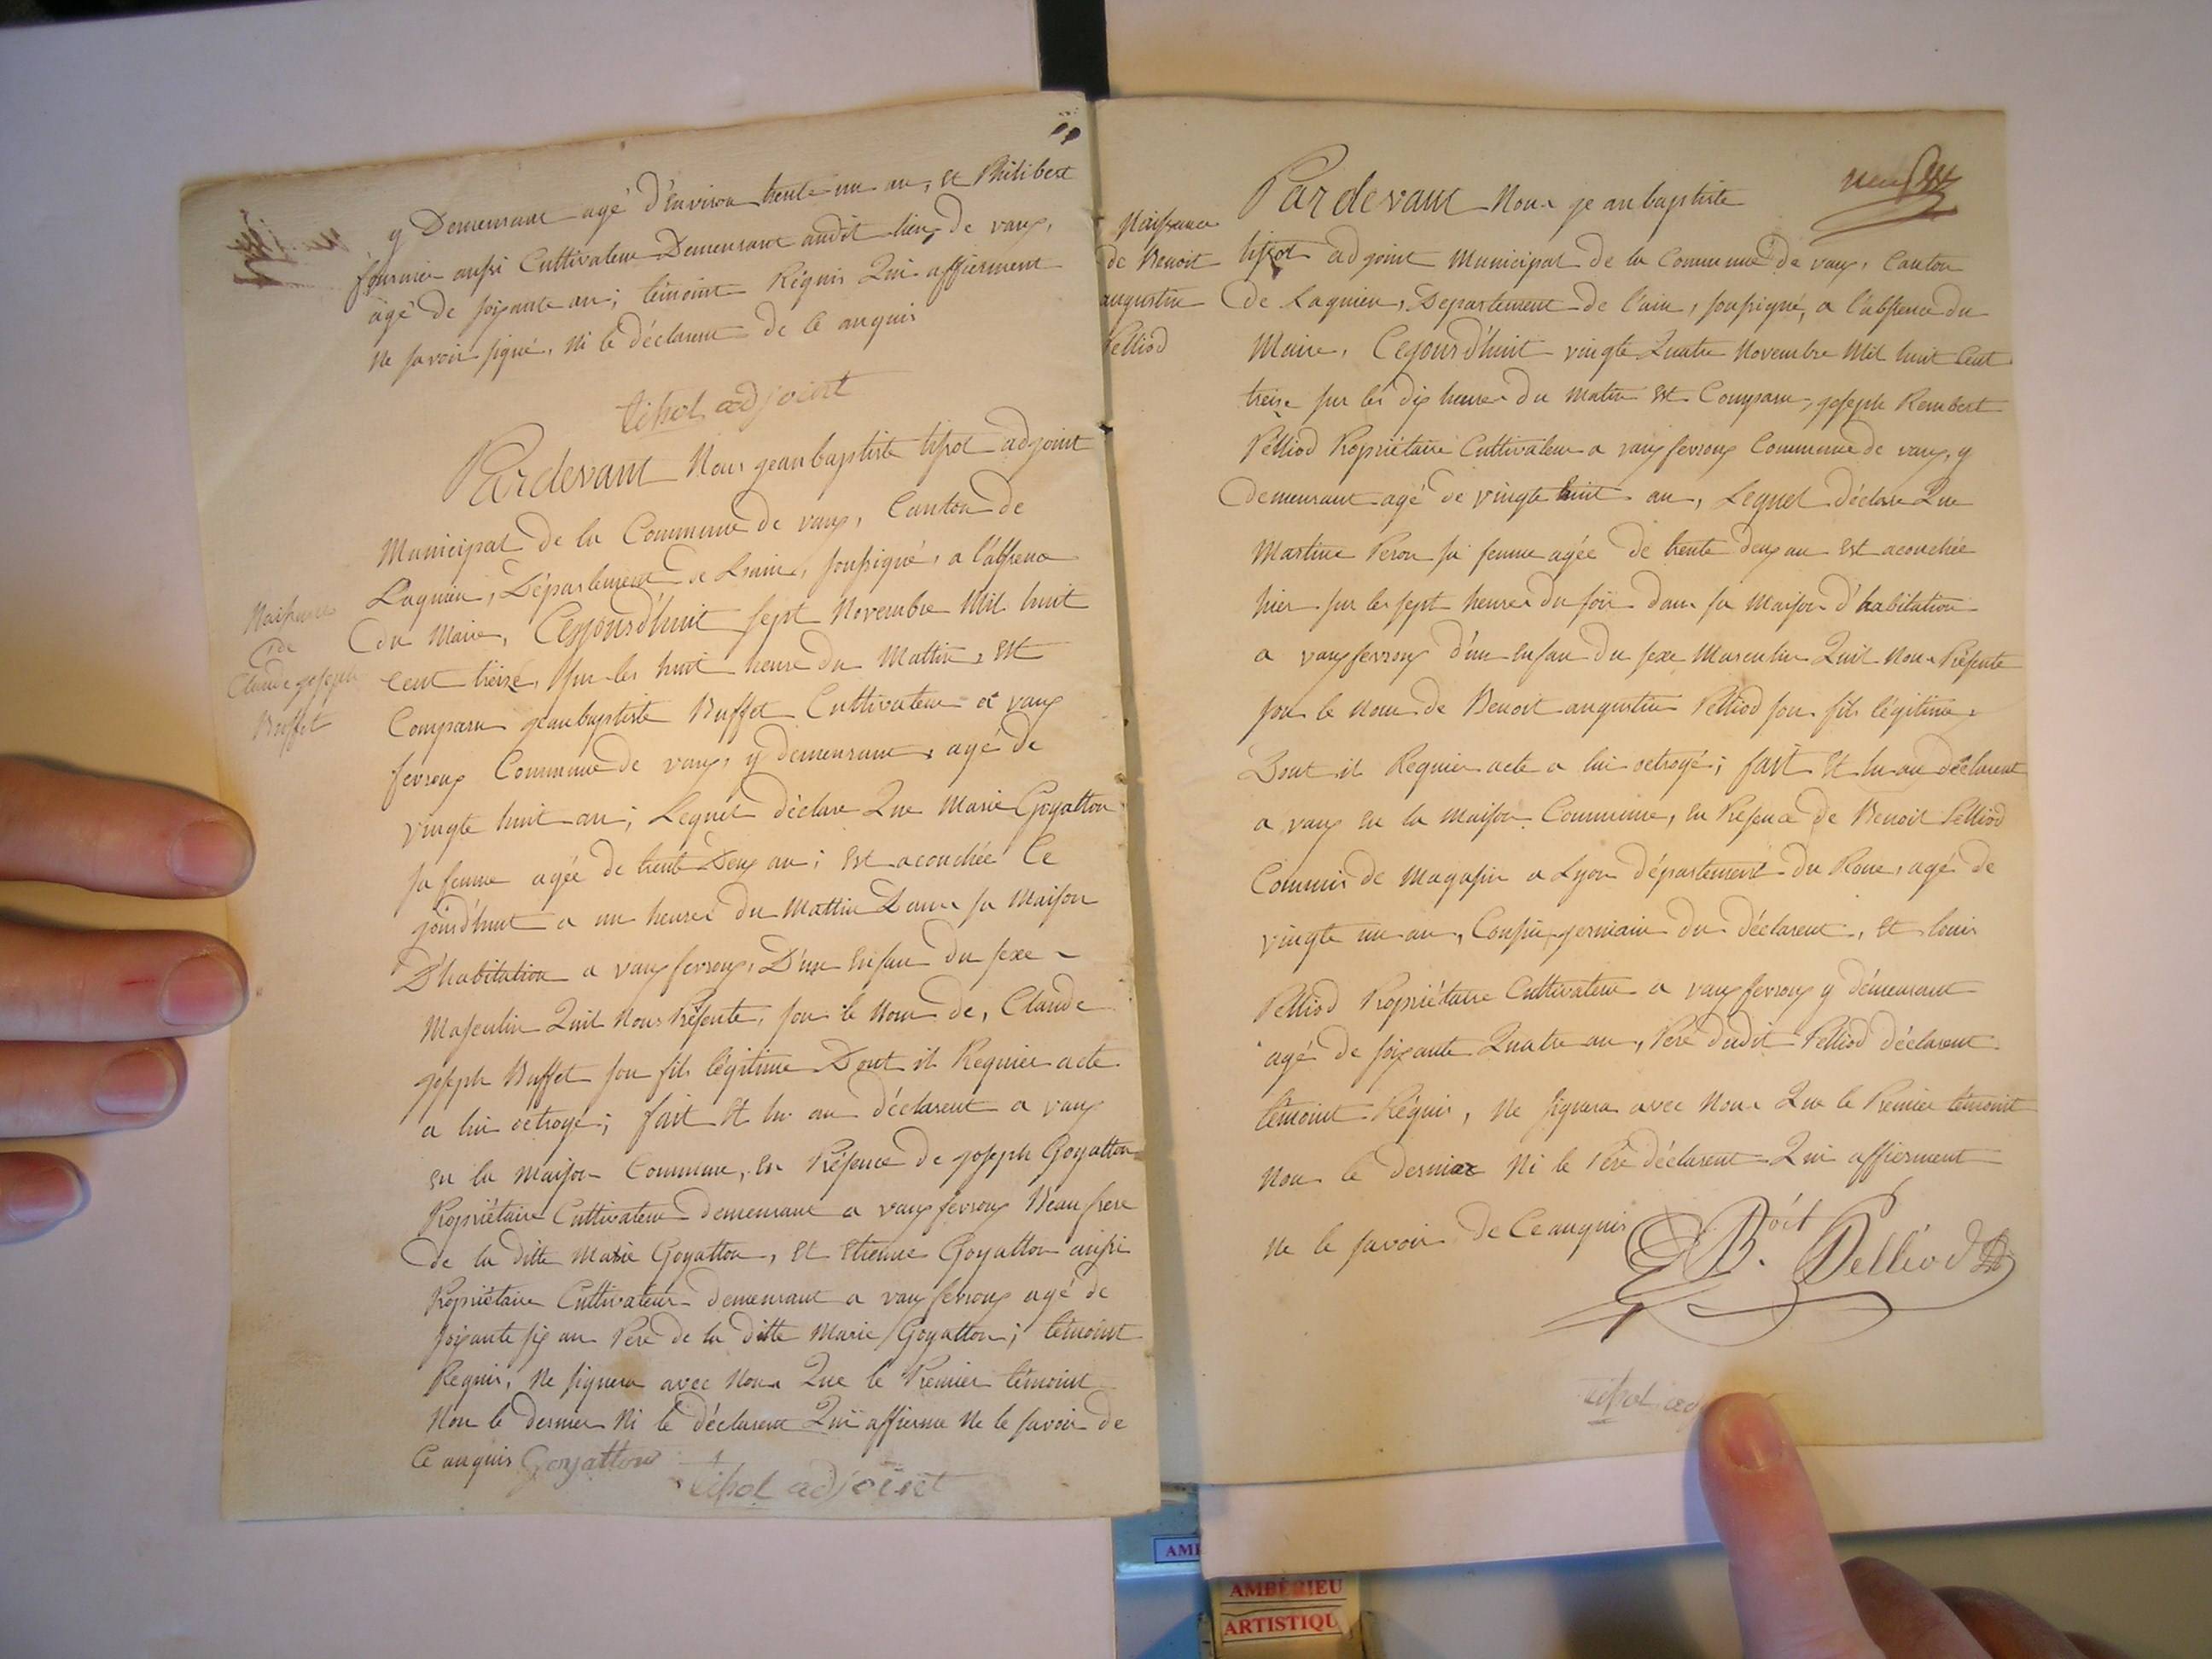 y Demeurant agé d'Environ trente un an, Et Philibert
fournier aussi Cultivateur Demeurant audit lieu de vaux,
agé de soixante an; témoint Réquis Qui affierment
Ne savoir signé, Ni le déclarent de ce anquis
tissot adjoint
Pardevant Nous jeanbaptiste tissot adjoint
Municipal de la Commune de vaux, Canton de
Lagnieu, Département de Lain, soussigné, a l'absence
du Maire, Cejourd'huit sept Novembre Mil huit
Cent treize, sur les huit heure du Mattin, Est
Comparu jeanbaptiste Buffet Cultivateur a vaux
fevroux Commune de vaux, y demeurant, agé de
vingte huit an; Lequel déclare Que Marie Goyatton
sa femme agée de trente Deux an; Est acouchée Ce
jourd'huit a un heures du Mattin Dans sa Maison
D'habitation a vaux fevroux, D'un Enfan du sexe
Masculin Quil Nous Présente, sou le Nom de, Claude
joseph Buffet son fils légitime Dont il Requier acte
a lui octroyé; fait Et lu au déclarent a vaux
En la Maison Commune, En Présence de joseph Goyatton
Propriétaire Cultivateur demeurant a vaux fevroux Beau frere
de la ditte Marie Goyatton, Et Etienne Goyatton aussi
Propriétaire Cultivateur demeurant a vaux fevroux agé de
soixante six an Pere de la ditte Marie Goyatton; témoint
Requis, Ne signera avec Nous Que le Premier témoint
Non le dernier Ni le déclarent Qui affierme Ne le savoir de
Ce anquis Goyatton
tissot adjoint
Naissance
de
Claude joseph
Buffet
neuf
Naissance
de Benoit
augustin
Pelliod
Pardevant Nous jeanbaptiste
tissot adjoint Municipal de la Commune de vaux, Canton
de Lagnieu, Departement de l'ain, soussigné, a l'absence du
Maire, Cejourd'huit vingte Quatre Novembre Mil huit Cent
treize sur les dix heures du Matin Est Comparu, joseph Rembert
Pelliod Propriétaire Cultivateur a vaux fevroux Commune de vaux, y
demeurant agé de vingte huit an, Lequel déclare Que
Martine Peron sa femme agée de trente deux an Est acouchée
hier sur les sept heures du soir dans sa Maison d'habitation
a vaux fevroux d'un Enfan du sexe Masculin Quil Nous Présente
sou le Nom de Benoit augustin Pelliod son fils légitime,
Dont il Requier acte a lui octroyé; fait Et lu au déclarent
a vaux En la Maison Commune, En Présence de Benoit Pelliod
Commis de Magasin a Lyon département du Rone, agé de
vingte un an, Cousin germain du déclarent, Et louis
Pelliod Propriétaire Cultivateur a vaux fevroux y démeurant
agé de soixante Quatre an, Pere dudit Pelliod déclarent
témoint Réquis, Ne signera avec Nous Que le Premier témoint
Non le dernier Ni le Pere déclarent Qui affierment
Ne le savoir de Ce anquis
B. oît Pelliod
tissot
AMBÉRIEU
ARTISTIQU